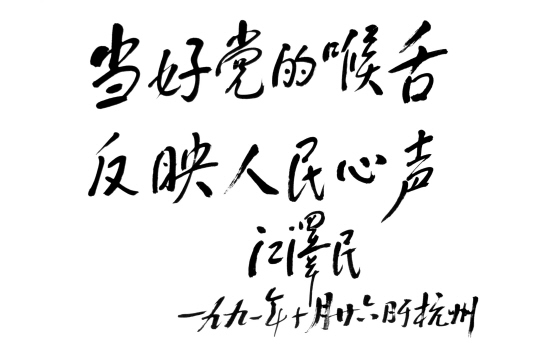 当好党的喉舌
反映人民心声
江澤民
一九九一年十月廿六日于杭州